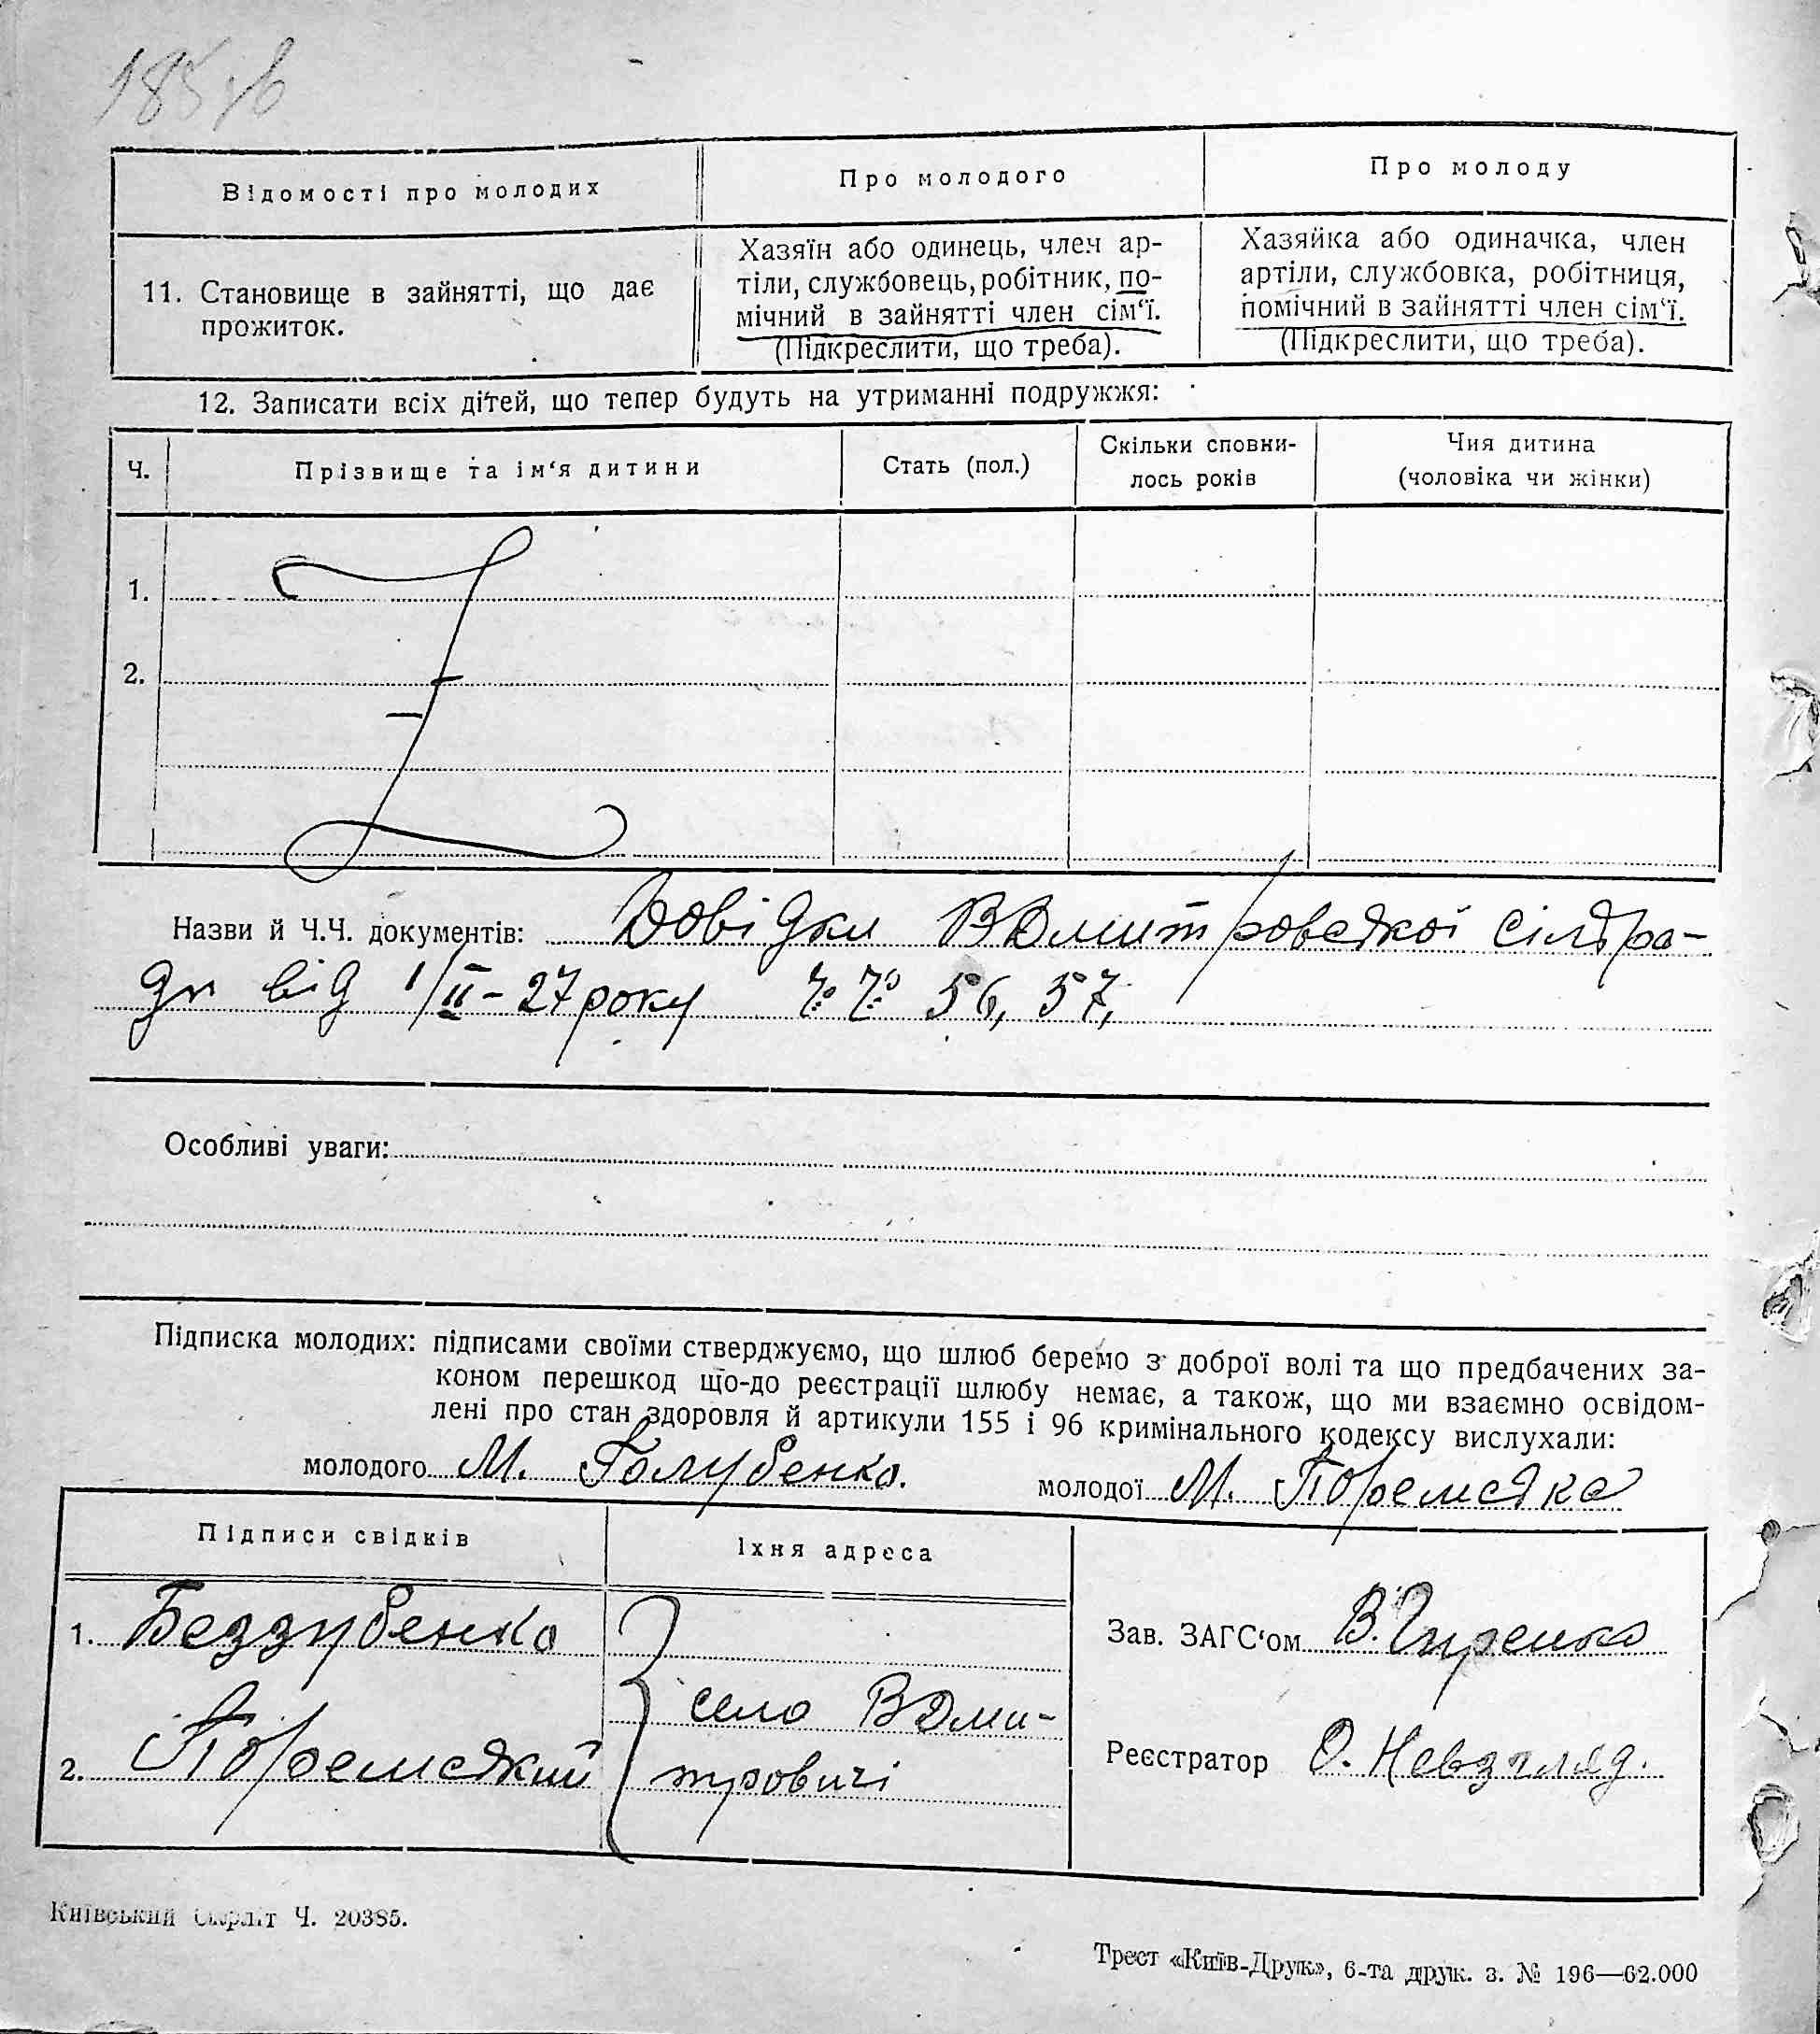 185 зв
Відомості про молодих
Про молодого
Про молоду
11. Становище в зайнятті, що дає
прожиток.
Хазяїн або одинець, член ар-
тіли, службовець, робітник, по-
мічний в зайнятті член сім‘ї.
(Підкреслити, що треба).
Хазяйка або одиначка, член
артіли, службовка, робітниця,
помічний в зайнятті член сім‘ї.
(Підкреслити, що треба).
12. Записати всіх дітей, що тепер будуть на утриманні подружжя:
Ч.
Прізвище та ім‘я дитини
Стать (пол.)
Скільки сповни-
лось років
Чия дитина
(чоловіка чи жінки)
1.
2.
Назви й Ч.Ч. документів: Довідки ВДмитровської сільра-
ди від 1/II-27 року Ч.Ч. 56, 57,
Особливі уваги:
Підписка молодих: підписами своїми стверджуємо, що шлюб беремо з доброї волі та що предбачених за-
коном перешкод що-до реєстрації шлюбу немає, а також, що ми взаємно освідом-
лені про стан здоровля й артикули 155 і 96 кримінального кодексу вислухали:
молодого М. Голубенко. молодої М. Поремська
Підписи свідків
Їхня адреса
1. Беззубенко
2. Поремський
село ВДми-
тровичі
Зав. ЗАГС‘ом
Реєстратор О. Невзгляд.
Київський Окрліт Ч. 20385.
Трест «Київ-Друк», 6-та друк. з. № 196—62.000